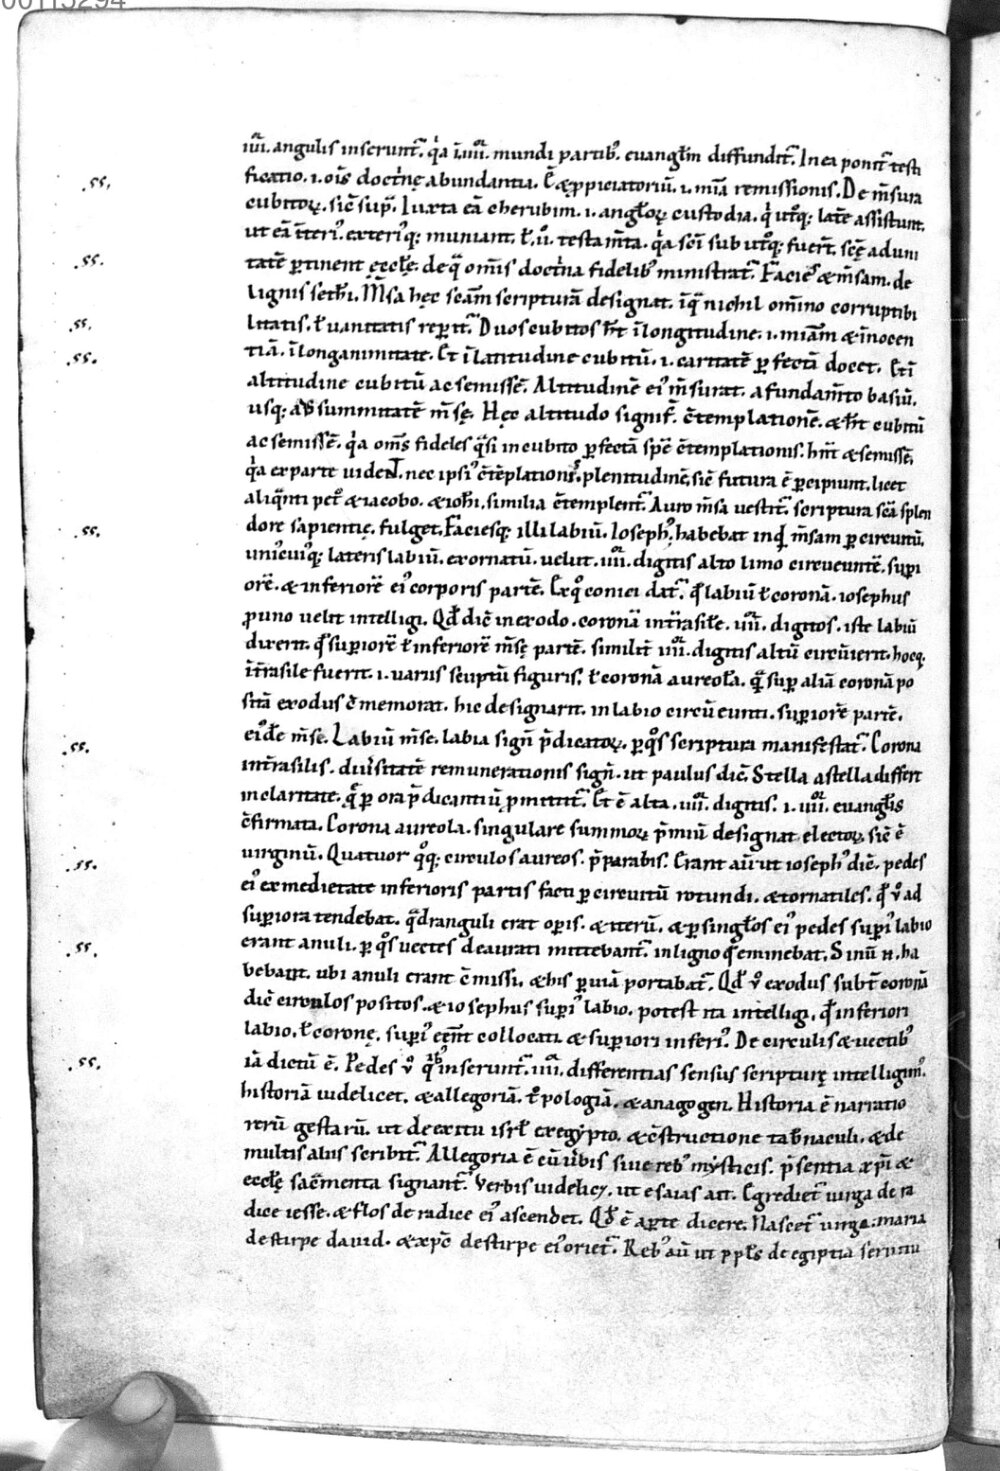 00115294
iiii. angulis inserunt᷑. q̇a i. iiii. mundi partib᷒. euangl̄m diffundit᷑. In ea ponit᷑ testi
ficatio. i. oīs doct̄nę abundantia. Ē & ꝓpiciatoriū. i. mīa remissionis. De m̄sura
cubitoꝝ. sic̄ sup̄. Iuxta eā cherubim. i. angl̄oꝝ custodia. q̇ ut̊q; lat̄e assistunt.
ut eā īteri᷒. exteri᷒q; muniant. ł. ů. testam̄ta. q̇a sc̄i sub ut̊q; fuer̄t. sc̄ę aduni
tatē ꝑtinent ęccl̄ę. de q̄ om̄is doct̄na fidelib᷒ ministrat᷑. Facies & m̄sam. de
lignis seth̄i. M̄sa hęc sc̄am scripturā designat. ī q̄ nichil om̄ino corruptibi
litatis. ł uanitatis reꝑit᷑. Duos cubitos h̄t ī longitudine. i. miām & inocen
tiā. ī longanimitate. Et ī latitudine cubitū. i. caritatē ꝑfectā docet. Et ī
altitudine cubitū ac semissē. Altitudinē ei᷒ m̄surat. a fundam̄to basiū.
usq; ad summitatē m̄sę. Hęc altitudo signif̄. c̄templationē. & h̄t cubitū
ac semissē. q̇a om̄s fideles q̄si in cubito ꝑfectā spē c̄templationis. hn̄t & semissē.
q̇a ex parte uident. nec ipsi᷒ c̄tēplationis plenitudinē. sic̄ futura ē ꝑcipiunt. licet
aliq̄nti pet̊ & iacobo. & ioh̄i. similia c̄templent᷑. Auro m̄sa uestit᷑. scriptura sc̄a splen
dore sapientię. fulget. Faciesq; illi labiū. Ioseph᷒. habebat inq̄d m̄sam ꝑ circuitū.
uni᷒cui᷒q; lateris labiū. exornatū. uelut. iiii. digitis alto limo circueuntē. supi
orē. & inferiorē ei᷒ corporis partē. Ex q̊ conici dat᷑. q̄d labiū ł coronā. iosephus
ꝓ uno uelit intelligi. Qđ dic̄ in exodo. coronā int̄rasilē. iiii. digitos. iste labiū
dixerit. q̄d superiorē ł inferiorē m̄sę partē. similit̄ iiii. digitis altū circūierit. hocq;
īt̄rasile fuerit. i. uariis sculptū figuris. ł coronā aureolā. q̄ sup̄ aliā coronā po
sitā exodus c̄memorat. hic designarit. in labio circūeunti. superiorē partē.
ei᷒dē m̄se. Labiū m̄se. labia sign̄ p̄dicatoꝝ. ꝑ q̊s scriptura manifestat᷑. Corona
int̄rasilis. diu̓sitatē remunerationis sign̄. ut paulus dic̄. Stella a stella differt
in claritate. q̄ ꝑ ora p̄dicantiū ꝓmittit᷑. Et ē alta. iiii. digitis. i. iiii. euangl̄is
c̄firmata. Corona aureola. singulare summoꝝ p̄miū designat electoꝝ. sic̄ ē
uirginū. Quatuor q̊q; circulos aureos. p̄parabis. Erant aū ut ioseph᷒ dic̄. pedes
ei᷒ ex medietate inferioris partis facti ꝑ circuitū rotundi. & tornatiles. q̄d v̊ ad
superiora tendebat. q̄dranguli erat oꝑis. & iterū. & ꝑ singl̄os ei᷒ pedes suꝑi᷒ labio
erant anuli. ꝑ q̊s uectes deaurati mittebant᷑. in ligno q̄d eminebat. Sinū n. ha
bebant. ubi anuli erant c̄missi. & his ꝑ uiā portabat᷑. Qđ v̊ exodus subt̄ coronā
dic̄ circulos positos. & iosephus suꝑi᷒ labio. potest ita intelligi. q̄d inferiori
labio. ł coronę. suꝑi᷒ eēnt collocati. & superiori inferi᷒. De circulis & uectib᷒
iā dictū ē. Pedes v̊ q̇b᷒ inserunt᷑. iiii. differentias sensus scripturę intelligim᷒.
historiā uidelicet. & allegoriā. tropologiā. & anagogen. Historia ē narratio
rerū gestarū. ut de exitu isrl̄ ex egypto. & c̄structione tab̄naculi. & de
multis aliis scribit᷑. Allegoria ē cū ūbis siue reb᷒ mysticis. p̄sentia xp̄i &
eccl̄ę sac̄menta signant᷑. Verbis uidelicꝫ. ut esaias ait. Egrediet᷑ uirga de ra
dice iesse. & flos de radice ei᷒ ascendet. Qđ ē aꝑte dicere. Nascet᷑ uirga. maria
de stirpe dauid. & xp̄c de stirpe ei᷒ oriet᷑. Reb᷒ aū ut ppl̄s de egiptia seruitu